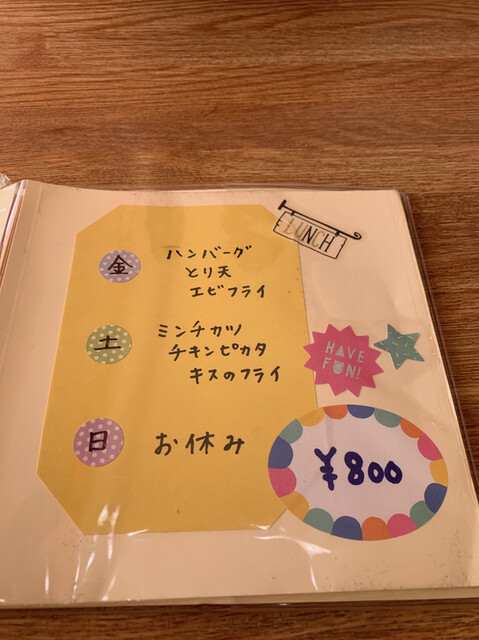 LUNCH
金
ハンバーグ
とり天
エビフライ
土
ミンチカツ
チキンピカタ
キスのフライ
HAVE
FUN!
日
お休み
¥800